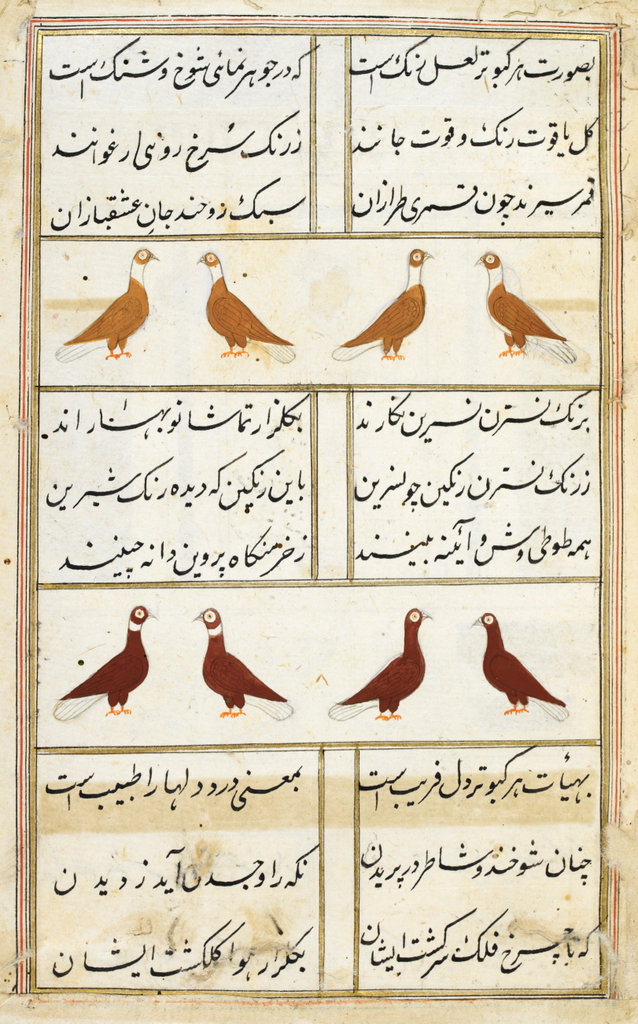 بصورت هر کبوتر لعل رنک است که در جوهر نمائی شوخ و شنک است
کل یاقوت رنک و قوت جانند ز رنک سرخ روی ارغوانند
قمر سیرند چون قمری طرازان سبک روحند جان عشقبازان
برنک نسترن نسرین نکارند بکلزار تماشا نوبهاراند
ز رنک نسترن رنکین چو نسرین باین رنکین که دیده رنک شیرین
همه طوطی وش و آئینه بینند ز خرمنکاه پروین دانه چینند
بهیأت هر کبوتر دل فریب است بمعنی درد دلها را طبیب است
چنان شوخند و شاطر در پریدن نکه را وجد آید ز دیدن
که با چرخ فلک سرکشت ایشان بکلزار هوا کلکشت ایشان